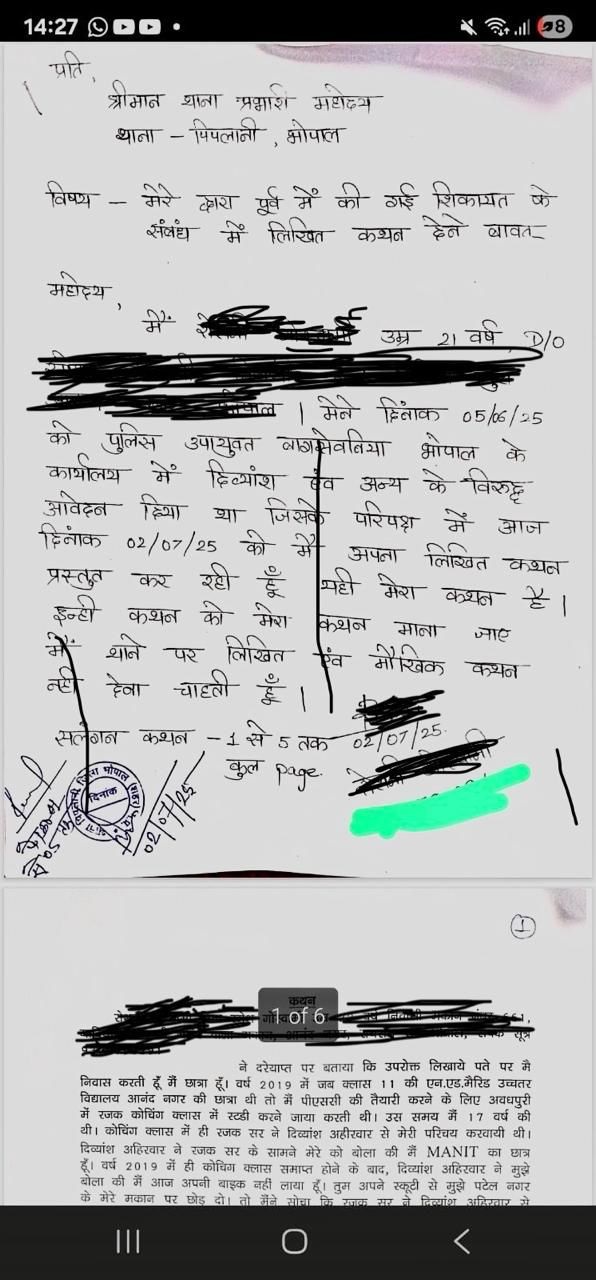 14:27
98
प्रति,
श्रीमान थाना प्रभारी महोदय
थाना - पिपलानी, भोपाल
विषय - मेरे द्वारा पूर्व में की गई शिकायत के
संबंध में लिखित कथन देने बावत
महोदय,
मैं उम्र 21 वर्ष, D/O
। मेने दिनांक 05/06/25
को पुलिस उपायुक्त बागसेवनिया भोपाल के
कार्यालय में दिव्यांश एंव अन्य के विरुद्ध
आवेदन दिया था जिसके परिपक्ष में आज
दिनांक 02/07/25 को मैं अपना लिखित कथन
प्रस्तुत कर रही हूँ यही मेरा कथन है।
इन्ही कथन को मेरा कथन माना जाए
मैं थाने पर लिखित एंव मौखिक कथन
नही देना चाहती हूँ।
सलंगन कथन - 1 से 5 तक
कुल page.
02/07/25.
दिनांक
02/07/25
1
कथन
1 of 6
ने दरेयाप्त पर बताया कि उपरोक्त लिखाये पते पर मै
निवास करती हूँ मैं छात्रा हूँ। वर्ष 2019 में जब क्लास 11 की एन.एड.मैरिड उच्चतर
विद्यालय आनंद नगर की छात्रा थी तो मैं पीएससी की तैयारी करने के लिए अवधपुरी
में रजक कोचिंग क्लास में स्टडी करने जाया करती थी। उस समय मैं 17 वर्ष की
थी। कोचिंग क्लास में ही रजक सर ने दिव्यांश अहीरवार से मेरी परिचय करवायी थी।
दिव्यांश अहिरवार ने रजक सर के सामने मेरे को बोला की मैं MANIT का छात्र
हूँ। वर्ष 2019 में ही कोचिंग क्लास समाप्त होने के बाद, दिव्यांश अहिरवार ने मुझे
बोला की मैं आज अपनी बाइक नहीं लाया हूँ। तुम अपने स्कूटी से मुझे पटेल नगर
के मेरे मकान पर छोड़ दो। तो मैंने सोचा कि रजक सर ने दिव्यांश अहिरवार से